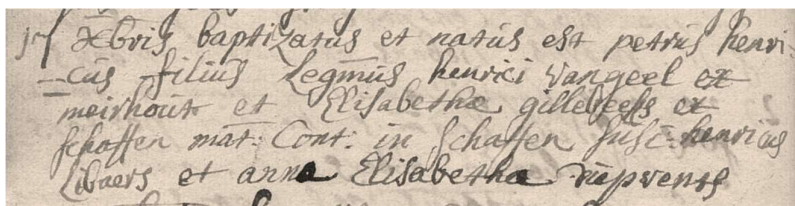 17 Xbris baptizatus et natus est petrus henri-
cus filius Legmus henrici vangeel ex
meirhout et Elisabethæ gillebeers ex
schaffen mat: Cont: in schaffen susc: henricus
Libaers et anna Elisabetha